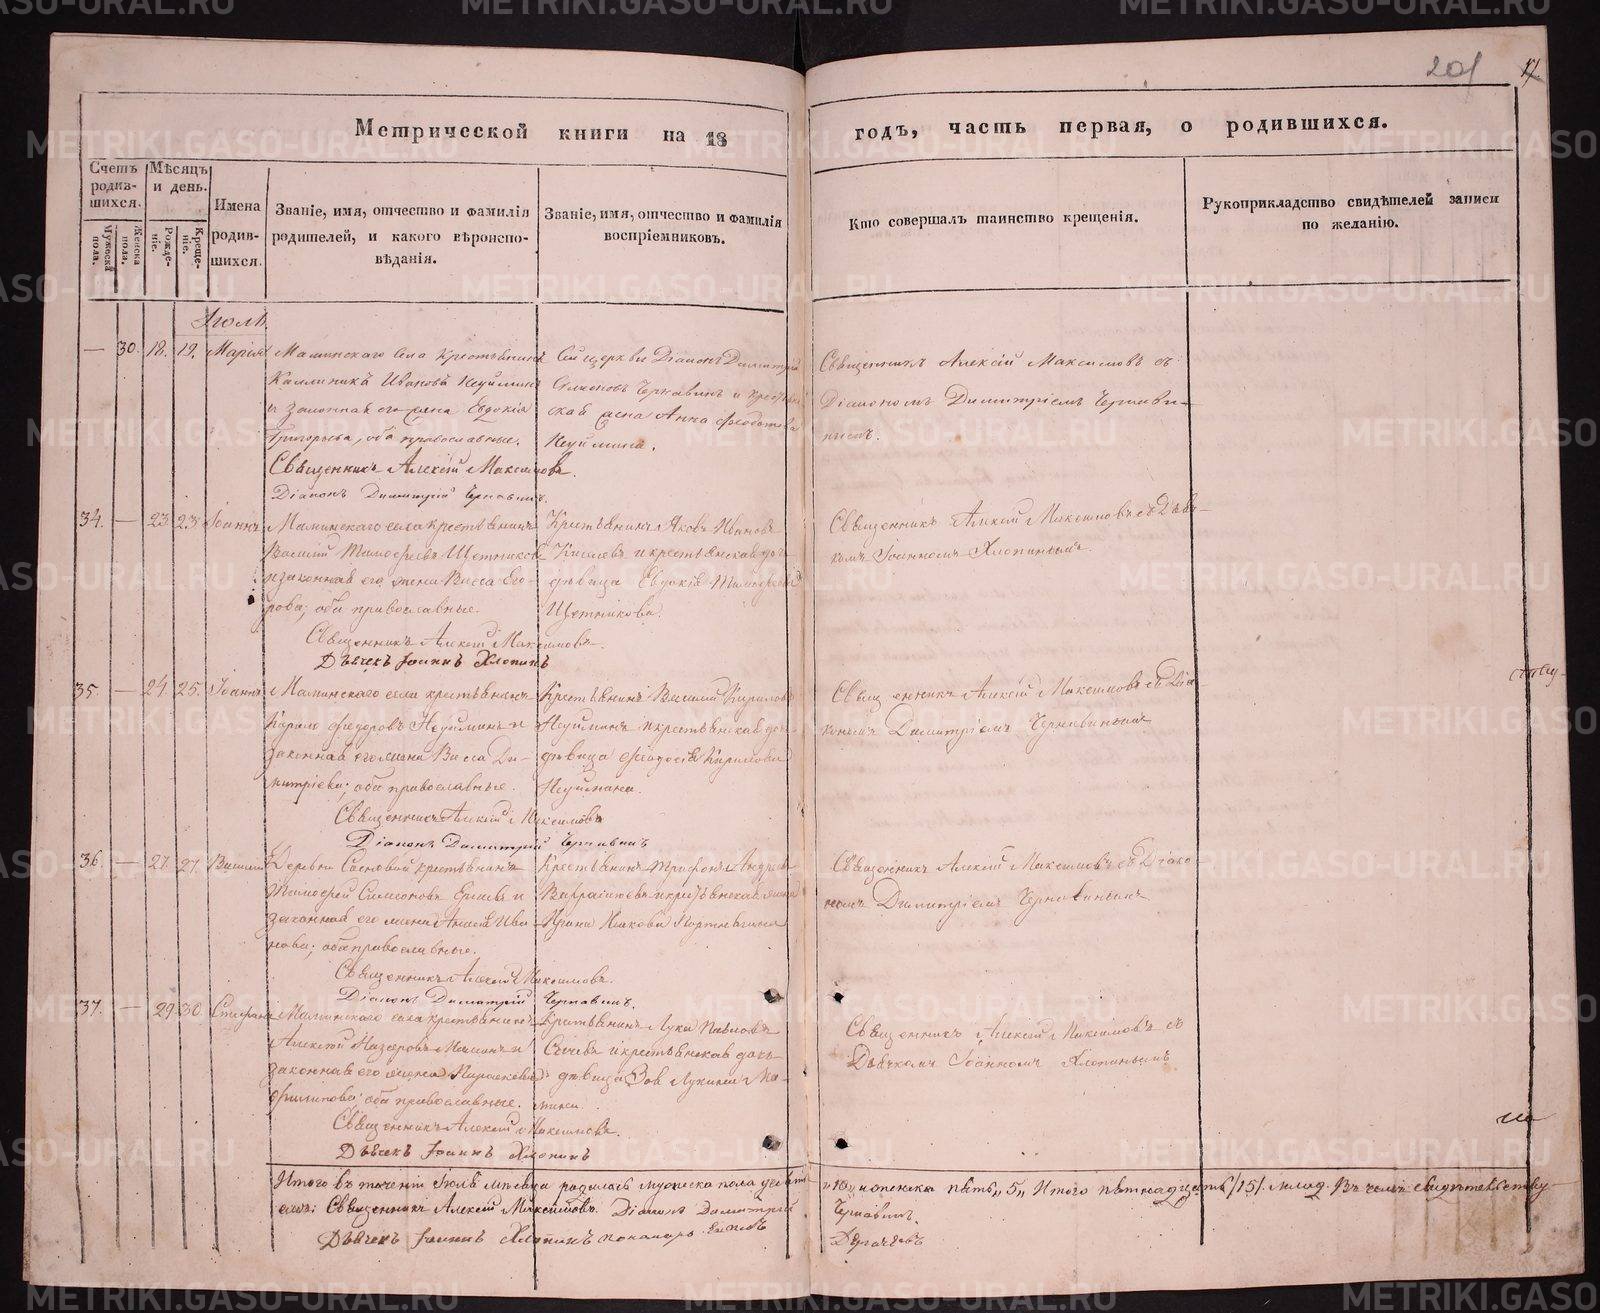 201 17
Метрической книги на 18 годъ, часть первая, о родившихся.
Счетъ родив-шихся.
Мужеска пола.
Женска пола.
Мѣсяцъ и день.
Рожде-ніе.
Креще-ніе.
Имена родив-шихся.
Званіе, имя, отчество и фамилія родителей, и какого вѣроиспо-вѣданія.
Званіе, имя, отчество и фамилія воспріемниковъ.
Кто совершалъ таинство крещенія.
Рукоприкладство свидѣтелей записи по желанію.
Іюль
— 30. 18. 19. Марія
Маминскаго села крестьянинъ
Каллиникъ Ивановъ Неуйминъ
и законная его жена Евдокія
Григорьева, оба православные.
Священникъ Алексій Максимовъ.
Діаконъ Димитрій Чернавинъ.
Сей церкви Діаконъ Димитрій
Симеоновъ Чернавинъ и крестьян
ская жена Анна Федотова
Неуймина.
Священникъ Алексій Максимовъ съ
Діакономъ Димитріемъ Чернави-
нымъ.
34. — 23 23 Іоаннъ
Маминскаго села крестьянинъ
Василій Тимофеевъ Щетниковъ
и законная его жена Васса Его-
рова; оба православные.
Священникъ Алексій Максимовъ.
Дьячекъ Іоаннъ Хлопинъ
Крестьянинъ Яковъ Ивановъ
Киселевъ и крестьянская до-
дѣвица Евдокія Тимофеева
Щетникова.
Священникъ Алексій Максимовъ съ Дьяч-
комъ Іоанномъ Хлопинымъ.
35. — 24. 25. Іоаннъ
Маминскаго села крестьянинъ
Кирилъ Федоровъ Неуйминъ и
законная его жена Васса Ди-
митріева; оба православные.
Священникъ Алексій Максимовъ
Діаконъ Димитрій Чернавинъ
Крестьянинъ Василій Кириловъ
Неуйминъ и крестьянская доч-
дѣвица Феодосія Кирилова
Неуймина.
Священникъ Алексій Максимовъ съ Діа-
кономъ Димитріемъ Чернавинымъ
36. — 27. 27. Василій
Деревни Сосновой крестьянинъ
Тимофей Симеоновъ Ершовъ и
законная его жена Анисія Ива
нова; оба православные.
Священникъ Алексій Максимовъ.
Діаконъ Димитрій Чернавинъ.
Крестьянинъ Трифонъ Андреевъ
и крестьянская жена
Священникъ Алексій Максимовъ съ Діако-
номъ Димитріемъ Чернавинымъ
37. — 29 30 Стефанъ
Маминскаго села крестьянинъ
Алексій Назаровъ Маминъ и
законная его жена Параскева
Филипова; оба православные.
Священникъ Алексій Максимовъ.
Дьячекъ Іоаннъ Хлопинъ
Крестьянинъ Лука Павловъ
Сычевъ и крестьянская дочь
дѣвица Лукина Ма-
мина.
Священникъ Алексій Максимовъ съ
Дьячкомъ Іоанномъ Хлопинымъ
Итого въ теченіи Іюля мѣсяца родилось мужеска пола десять „10„ и женска пять „5„ Итого пятнадцать /15/ млад. Въ чемъ свидѣтельству-
емъ: Священникъ Алексій Максимовъ. Діаконъ Димитрій Чернавинъ.
Дьячекъ Іоаннъ Хлопинъ пономарь